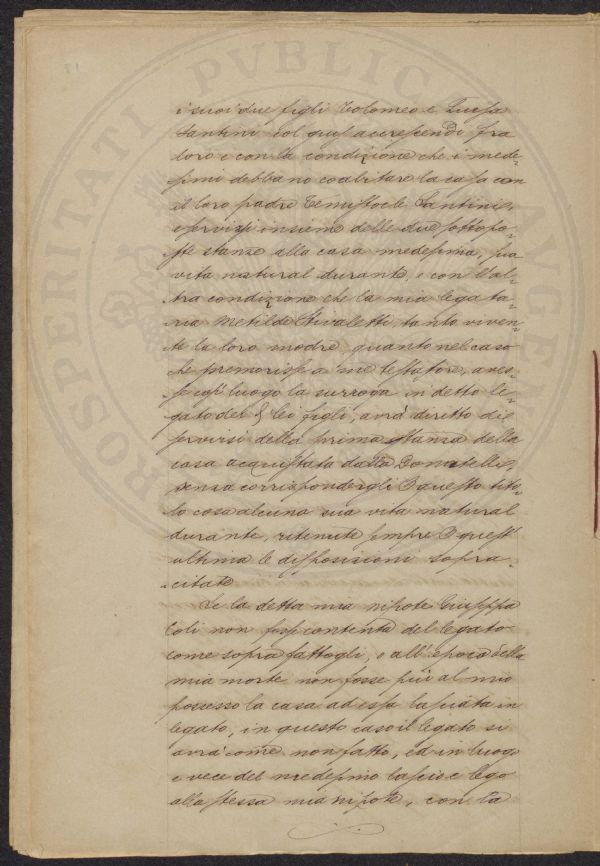 i suoi due figli Tolomeo e Luisa
Santini col gius accrescendi fra
loro e con la condizione che i mede-
simi debbano coabitare la casa con
il loro padre Temistocle Santini,
e servirsi insieme delle due sottopo-
ste stanze alla casa medesima, sua
vita natural durante, e con l'al-
tra condizione che la mia legata-
ria Metilde Stivaletti, tanto viven-
te la loro madre, quanto nel caso
che premorisse a me testatore, aves-
se così luogo la surroga in detto le-
gato dei di lei figli, avrà diritto di
servirsi della prima stanza della
casa acquistata dalla Donatelli,
senza corrispondergli questo tito-
lo cosa alcuna sua vita natural
durante, ritenute sempre quest'
ultima le disposizioni sopra-
citate
Se la detta mia nipote Giuseppa
Coli non fosse contenta del legato
come sopra fattogli, o all'epoca della
mia morte non fosse più al mio
possesso la casa ad essa lasciata in
legato, in questo caso il legato si
avrà come non fatto, ed in luogo
e vece del medesimo lascio e lego
alla stessa mia nipote, con la
PROSPERITATI PVBLICAE AVGENDAE